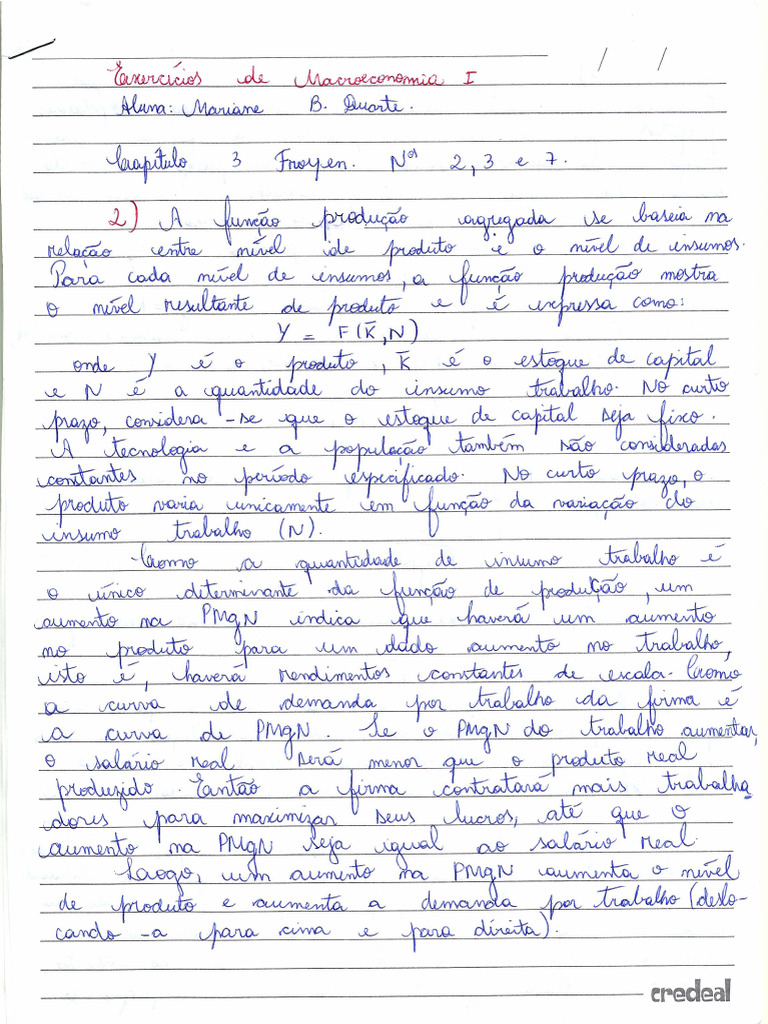 / /
Exercícios de Macroeconomia I
Aluna: Mariane B. Duarte.
Capítulo 3 Froyen. Nos 2, 3 e 7.
2) A função produção agregada se baseia na
relação entre nível de produto e o nível de insumos.
Para cada nível de insumos, a função produção mostra
o nível resultante de produto e é expressa como:
Y = F(K̄,N)
onde Y é o produto, K̄ é o estoque de capital
e N é a quantidade do insumo trabalho. No curto
prazo, considera-se que o estoque de capital seja fixo.
A tecnologia e a população também são consideradas
constantes no período especificado. No curto prazo, o
produto varia unicamente em função da variação do
insumo trabalho (N).
Como a quantidade de insumo trabalho é
o único determinante da função de produção, um
aumento na PMgN indica que haverá um aumento
no produto para um dado aumento no trabalho,
isto é, haverá rendimentos constantes de escala. Como
a curva de demanda por trabalho da firma é
a curva de PMgN. Se o PMgN do trabalho aumentar,
o salário real será menor que o produto real
produzido. Então a firma contratará mais trabalha
dores para maximizar seus lucros, até que o
aumento na PMgN seja igual ao salário real.
Logo, um aumento na PMgN aumenta o nível
de produto e aumenta a demanda por trabalho (deslo-
cando-a para cima e para direita).
credeal